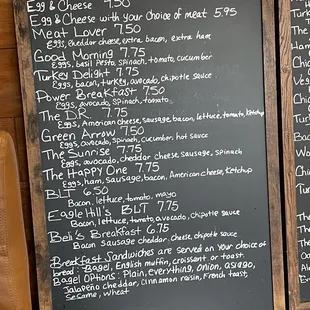 Egg & Cheese 7.50
Egg & Cheese with your choice of meat 5.95
Meat Lover 7.50
Eggs, cheddar cheese, extra bacon, extra ham
Good Morning 7.75
Eggs, basil pesto, spinach, tomato, cucumber
Turkey Delight 7.75
Eggs, bacon, turkey, avocado, chipotle sauce
Power Breakfast 7.50
Eggs, avocado, spinach, tomato
The D.R. 7.75
Eggs, American cheese, sausage, bacon, lettuce, tomato, ketchup
Green Arrow 7.50
Eggs, avocado, spinach, cucumber, hot sauce
The Sunrise 7.75
Eggs, avocado, cheddar cheese, sausage, spinach
The Happy One 7.75
Eggs, ham, sausage, bacon, American cheese, ketchup
BLT 6.50
Bacon, lettuce, tomato, mayo
Eagle Hill's BLT 7.75
Bacon, lettuce, tomato, avocado, chipotle sauce
Bel's Breakfast 6.75
Bacon sausage cheddar, cheese, chipotle sauce
Breakfast Sandwiches are served on your choice of
bread: Bagel, English muffin, croissant or toast.
Bagel Options: Plain, everything, onion, asiago,
Jalapeño cheddar, cinnamon raisin, French toast,
Sesame, wheat